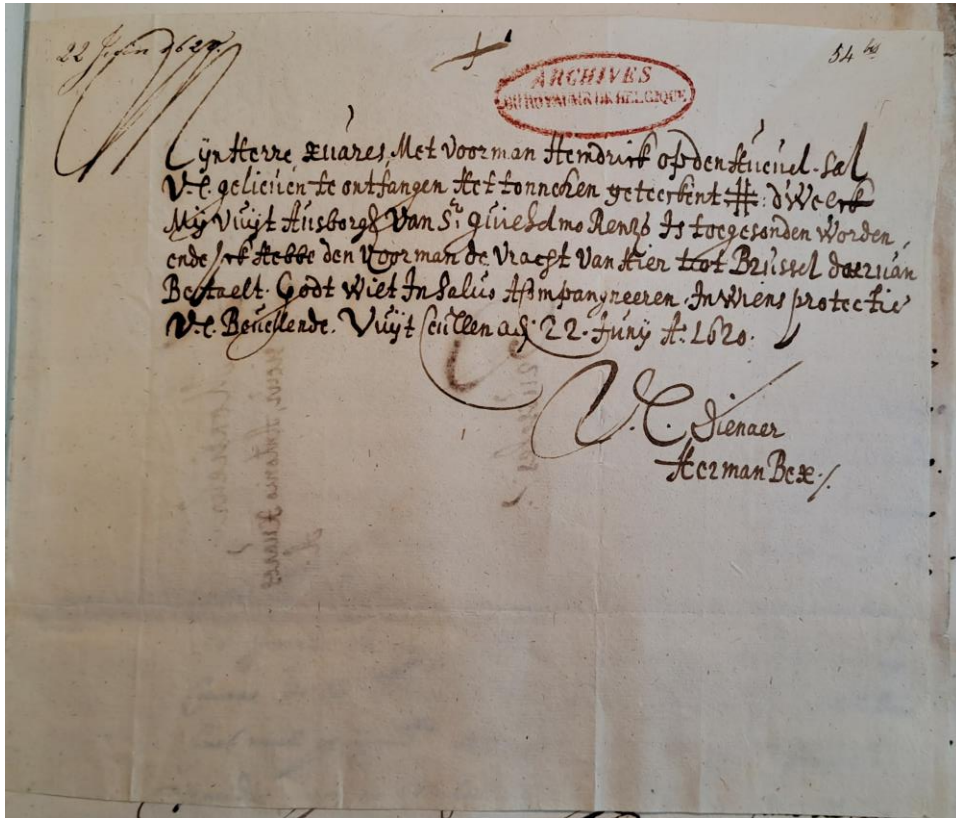 22 Juin 1620.
54
ARCHIVES
DU ROYAUME DE BELGIQUE
Mijn Herre Xuares, Met Voorman Hemdrick op den Huevel. Sal
V.E. gelieven te ontfangen Het tonneken geteeckent #: d'Welck
Mij Vuijt Ausborgh Van Sr. guiehdmo Renzo Is toegesonden Worden,
ende Ick Hebbe den Voorman de Vracht Van Hier toot Brussel daervan
Betaelt. Godt Wiet In Salvo Accompangneeren. In Wiens protectie
V.E. Bevellende. Vuijt Ceullen adj 22. Junij Ao. 1620.
V. E. Dienaer
Herman Bex